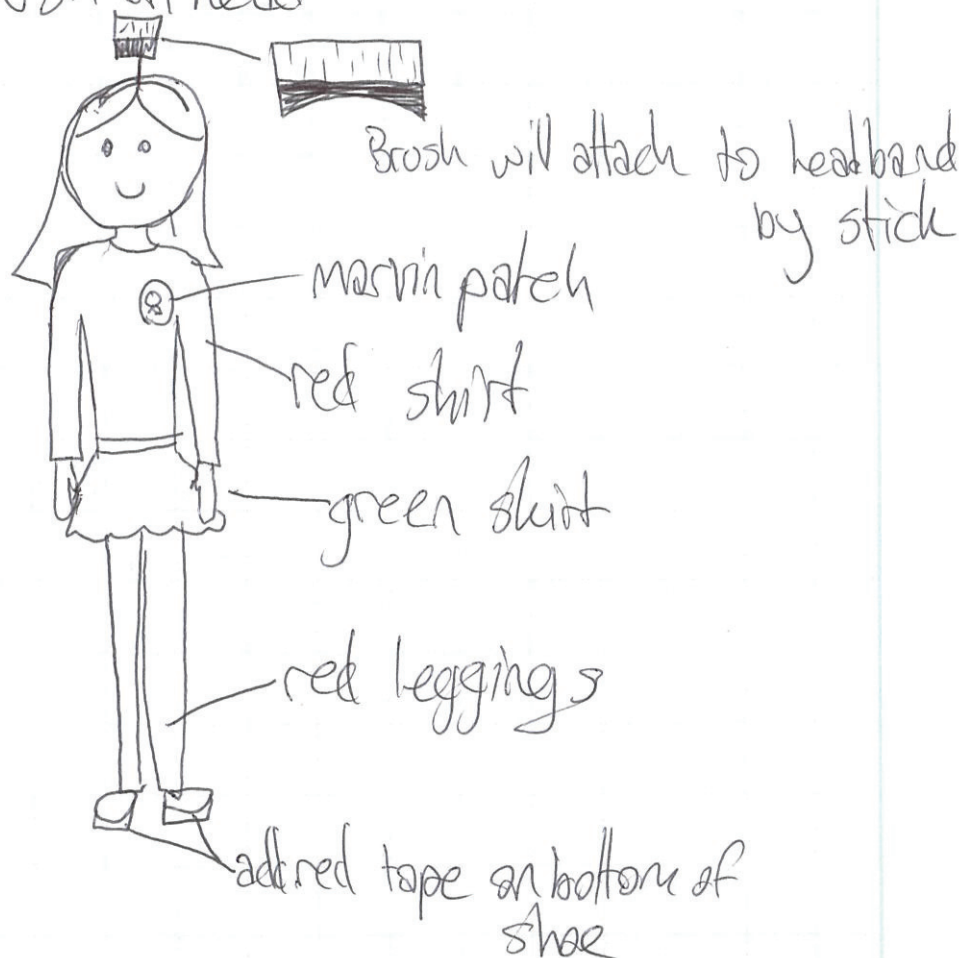 on head
Brush will attach to headband
by stick
marvin patch
red shirt
green skirt
red leggings
add red tape on bottom of
shoe